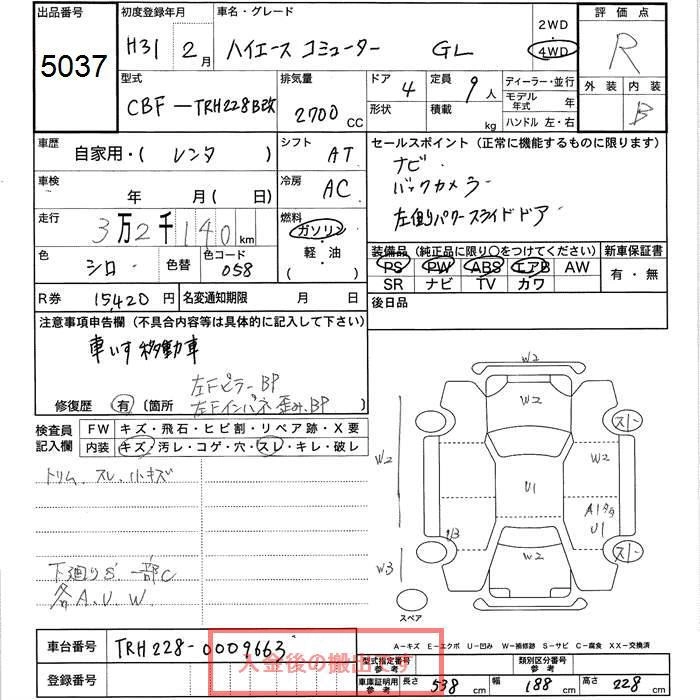 出品番号
5037
初度登録年月
H31 2月
車名・グレード
ハイエース コミューター GL
2WD
4WD
評価点
R
外装 内装
B
型式
CBF-TRH228B改
排気量
2700 CC
ドア 4
形状
定員 9人
積載 kg
ディーラー・並行
モデル年式 年
ハンドル 左・右
車歴
自家用・( レンタ )
シフト
AT
セールスポイント (正常に機能するものに限ります)
ナビ
バックカメラ
左側パワースライドドア
車検
年 月( 日)
冷房
AC
走行
3万2千140km
燃料
ガソリン
軽・油
( )
色
シロ
色替
色コード
058
装備品 (純正品に限り○をつけてください)
PS PW ABS エアB AW
SR ナビ TV カワ
新車保証書
有・無
R券 15420円
名変通知期限 月 日
後日品
注意事項申告欄 (不具合内容等は具体的に記入して下さい)
車いす移動車
左FピラーBP
修復歴 有 (箇所 左Fインパネ歪み、BP )
検査員記入欄
FW キズ・飛石・ヒビ割・リペア跡・X要
内装 キズ・汚レ・コゲ・穴・スレ・キレ・破レ
トリム スレ 小キズ
下廻りS 一部C
各A.U.W.
W2
W2
スレ
W2
W2
U1
A1
U1
U3
W2
W3
スレ
スペア
A-キズ E-エクボ U-凹み W-補修跡 S-サビ C-腐食 XX-交換済
車台番号
TRH228-0009663
入金後の搬出です
型式指定番号
参考
類別区分番号
参考
登録番号
車庫証明用
参考
長さ 538 cm 幅 188 cm 高さ 228 cm